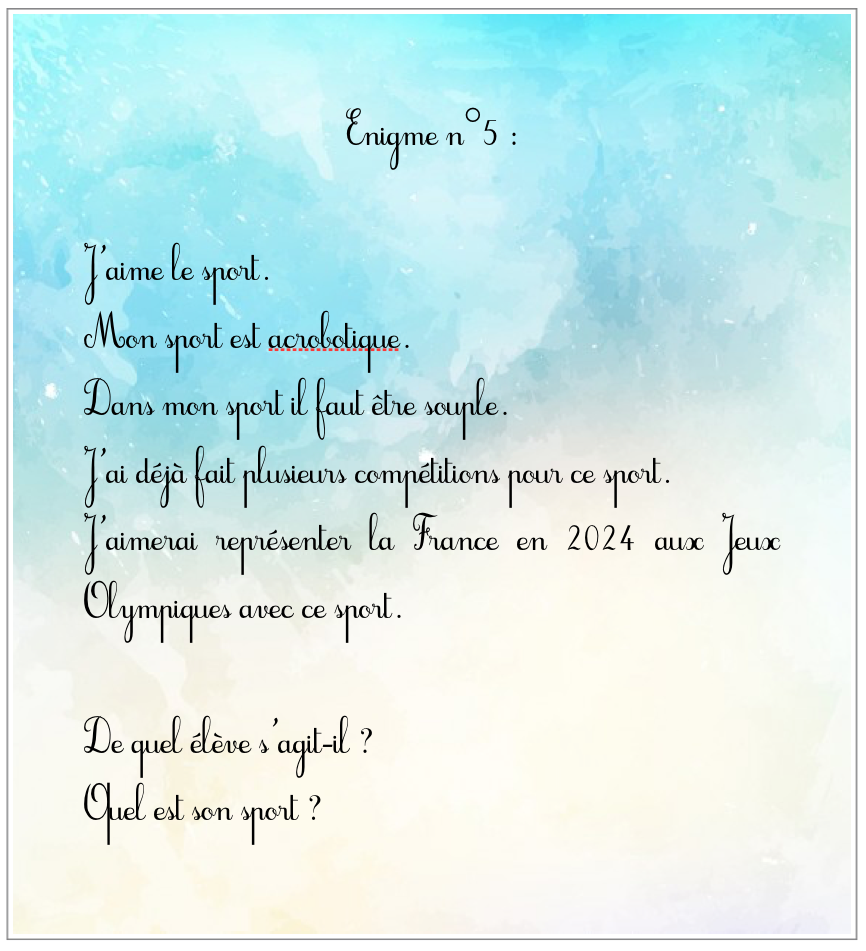 Enigme n°5 :
J'aime le sport.
Mon sport est acrobotique.
Dans mon sport il faut être souple.
J'ai déjà fait plusieurs compétitions pour ce sport.
J'aimerai représenter la France en 2024 aux Jeux
Olympiques avec ce sport.
De quel élève s'agit-il ?
Quel est son sport ?